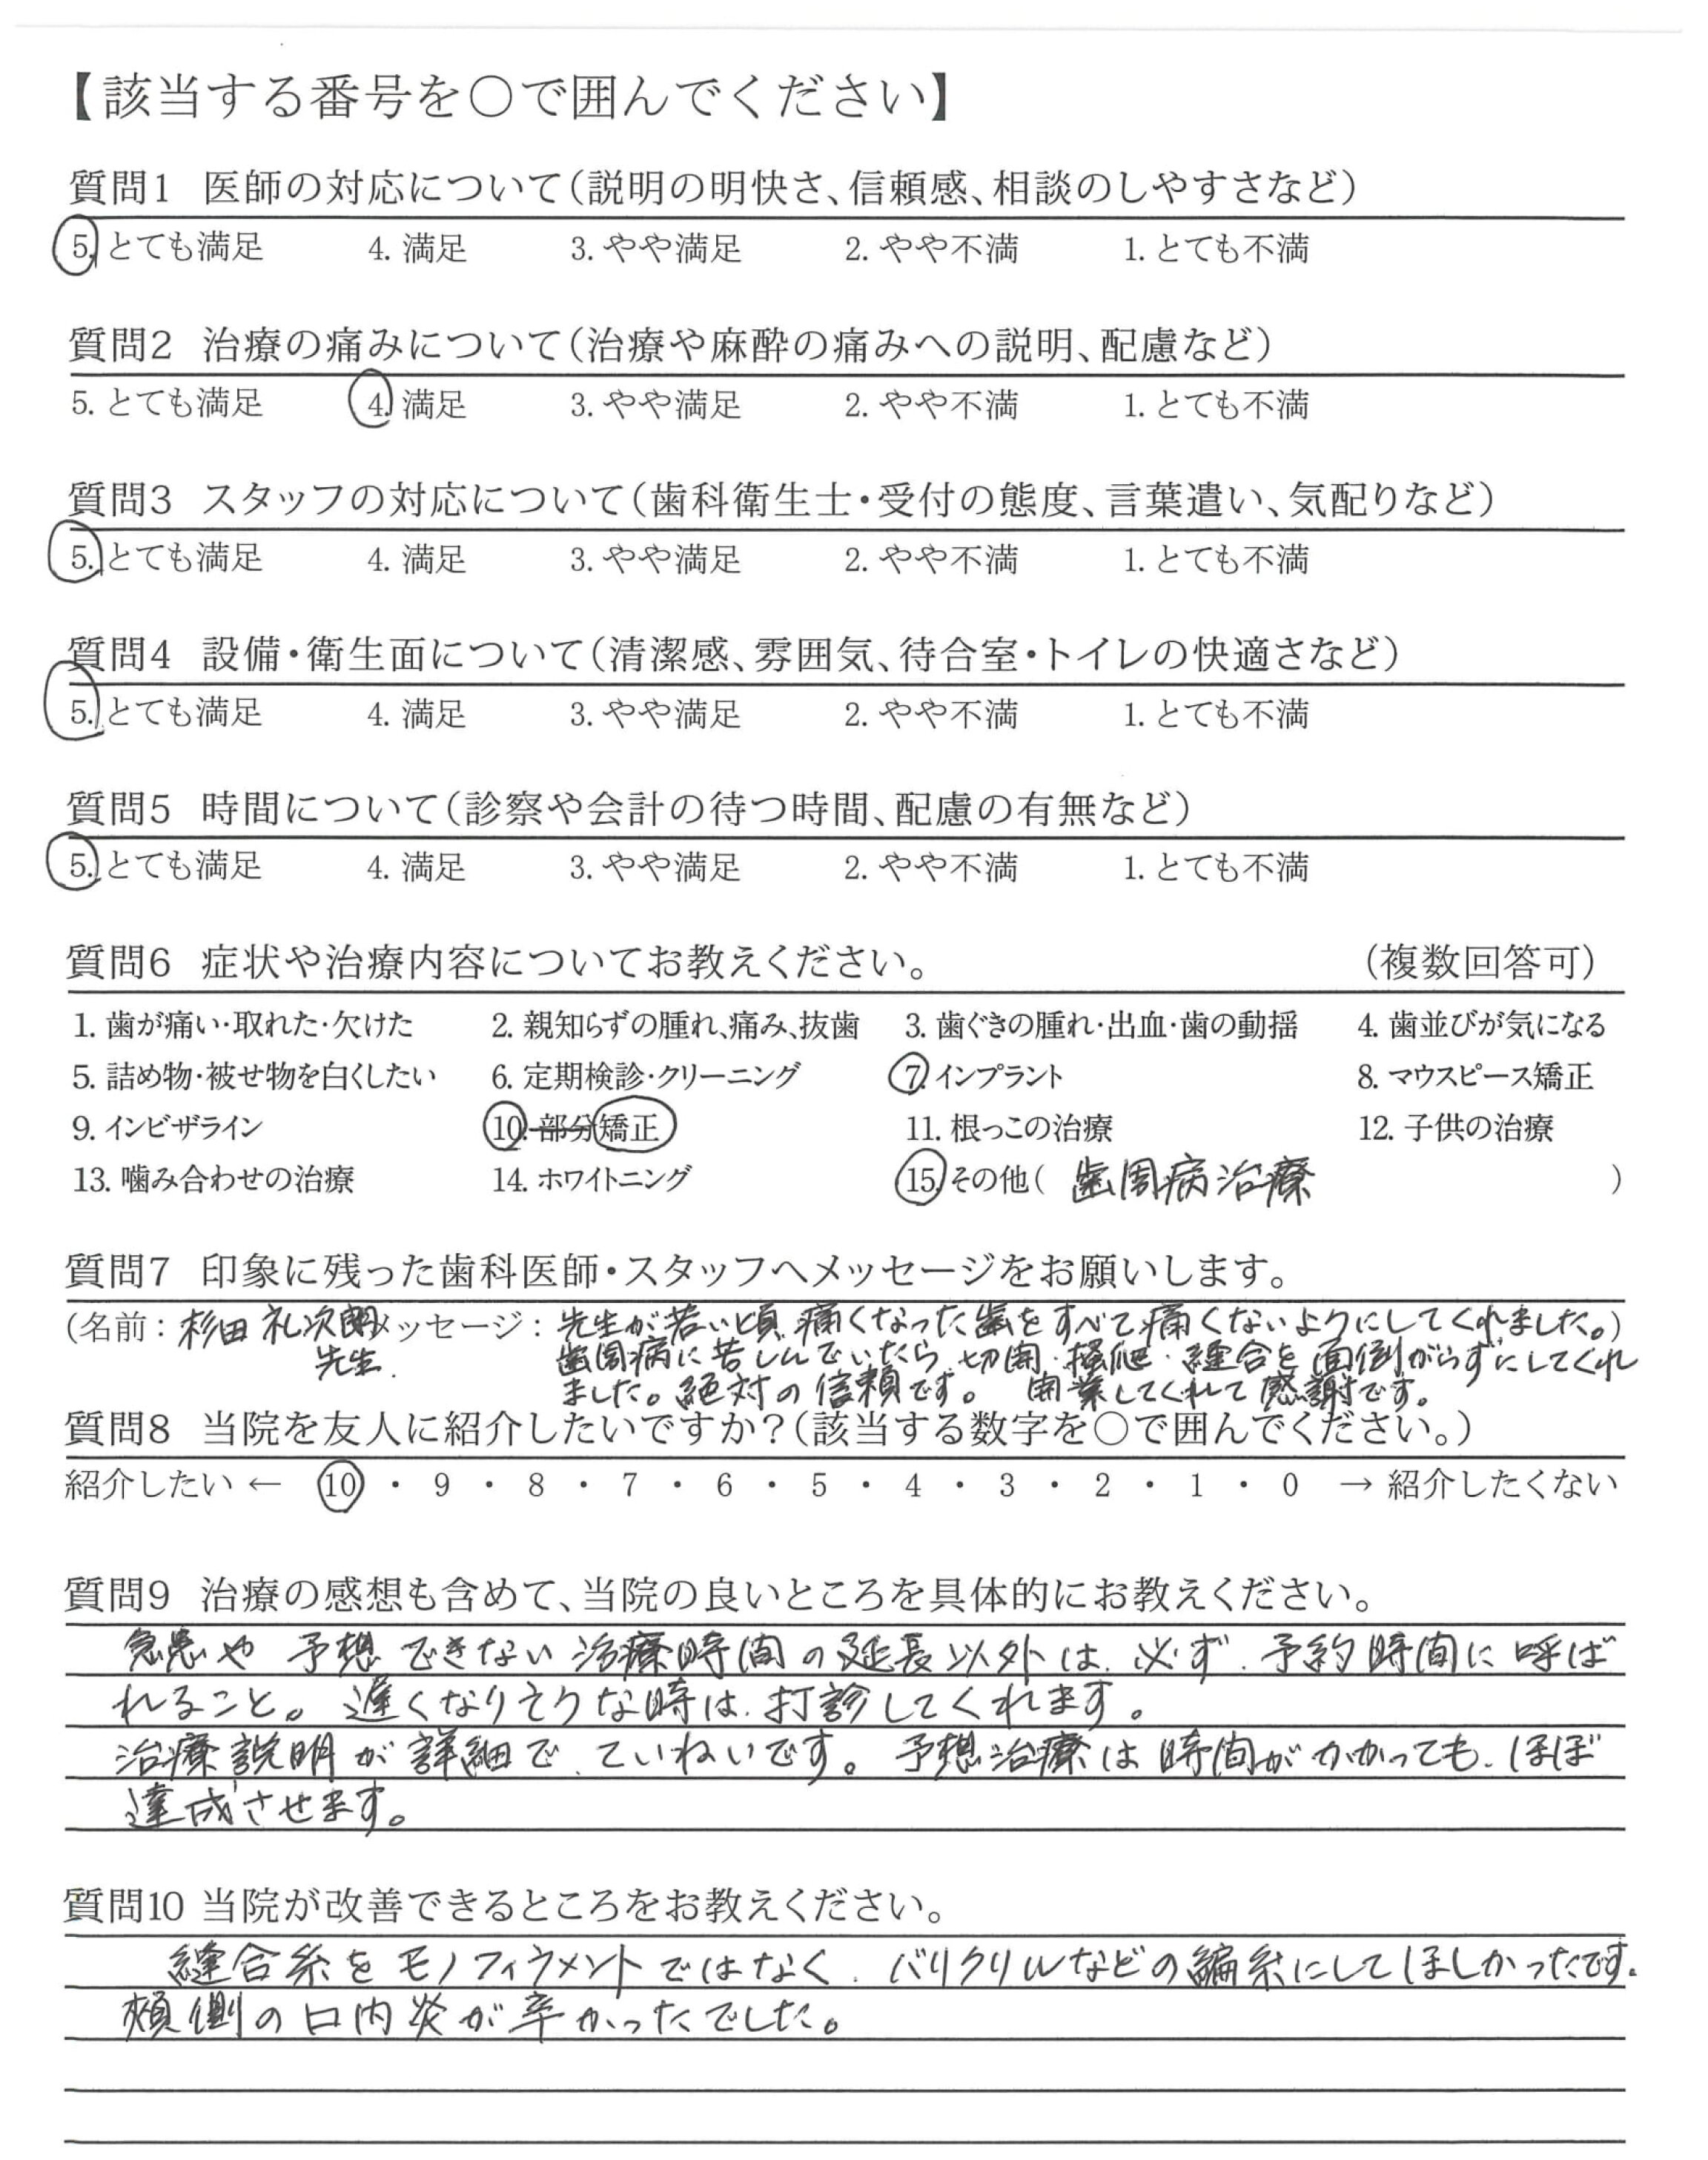 【該当する番号を○で囲んでください】
質問1 医師の対応について(説明の明快さ、信頼感、相談のしやすさなど)
5. とても満足 4. 満足 3. やや満足 2. やや不満 1. とても不満
質問2 治療の痛みについて(治療や麻酔の痛みへの説明、配慮など)
5. とても満足 4. 満足 3. やや満足 2. やや不満 1. とても不満
質問3 スタッフの対応について(歯科衛生士・受付の態度、言葉遣い、気配りなど)
5. とても満足 4. 満足 3. やや満足 2. やや不満 1. とても不満
質問4 設備・衛生面について(清潔感、雰囲気、待合室・トイレの快適さなど)
5. とても満足 4. 満足 3. やや満足 2. やや不満 1. とても不満
質問5 時間について(診察や会計の待つ時間、配慮の有無など)
5. とても満足 4. 満足 3. やや満足 2. やや不満 1. とても不満
質問6 症状や治療内容についてお教えください。 (複数回答可)
1. 歯が痛い・取れた・欠けた 2. 親知らずの腫れ、痛み、抜歯 3. 歯ぐきの腫れ・出血・歯の動揺 4. 歯並びが気になる
5. 詰め物・被せ物を白くしたい 6. 定期検診・クリーニング 7. インプラント 8. マウスピース矯正
9. インビザライン 10. 部分矯正 11. 根っこの治療 12. 子供の治療
13. 噛み合わせの治療 14. ホワイトニング 15. その他( 歯周病治療 )
質問7 印象に残った歯科医師・スタッフへメッセージをお願いします。
(名前: 杉田 礼次朗 メッセージ: 先生が若い頃、痛くなった歯をすべて痛くないようにしてくれました。)
先生. 歯周病に苦しんでいたら、切開・掻爬・縫合を面倒がらずにしてくれ
ました。絶対の信頼です。 開業してくれて感謝です。
質問8 当院を友人に紹介したいですか?(該当する数字を○で囲んでください。)
紹介したい ← 10 ・ 9 ・ 8 ・ 7 ・ 6 ・ 5 ・ 4 ・ 3 ・ 2 ・ 1 ・ 0 → 紹介したくない
質問9 治療の感想も含めて、当院の良いところを具体的にお教えください。
急患や 予想できない治療時間の延長以外は、必ず、予約時間に呼ば
れること。遅くなりそうな時は、打診してくれます。
治療説明が詳細で、ていねいです。予想治療は時間がかかっても、ほぼ
達成させます。
質問10 当院が改善できるところをお教えください。
縫合糸をモノフィラメントではなく、バリクリルなどの編糸にしてほしかったです。
頬側の口内炎が辛かったでした。